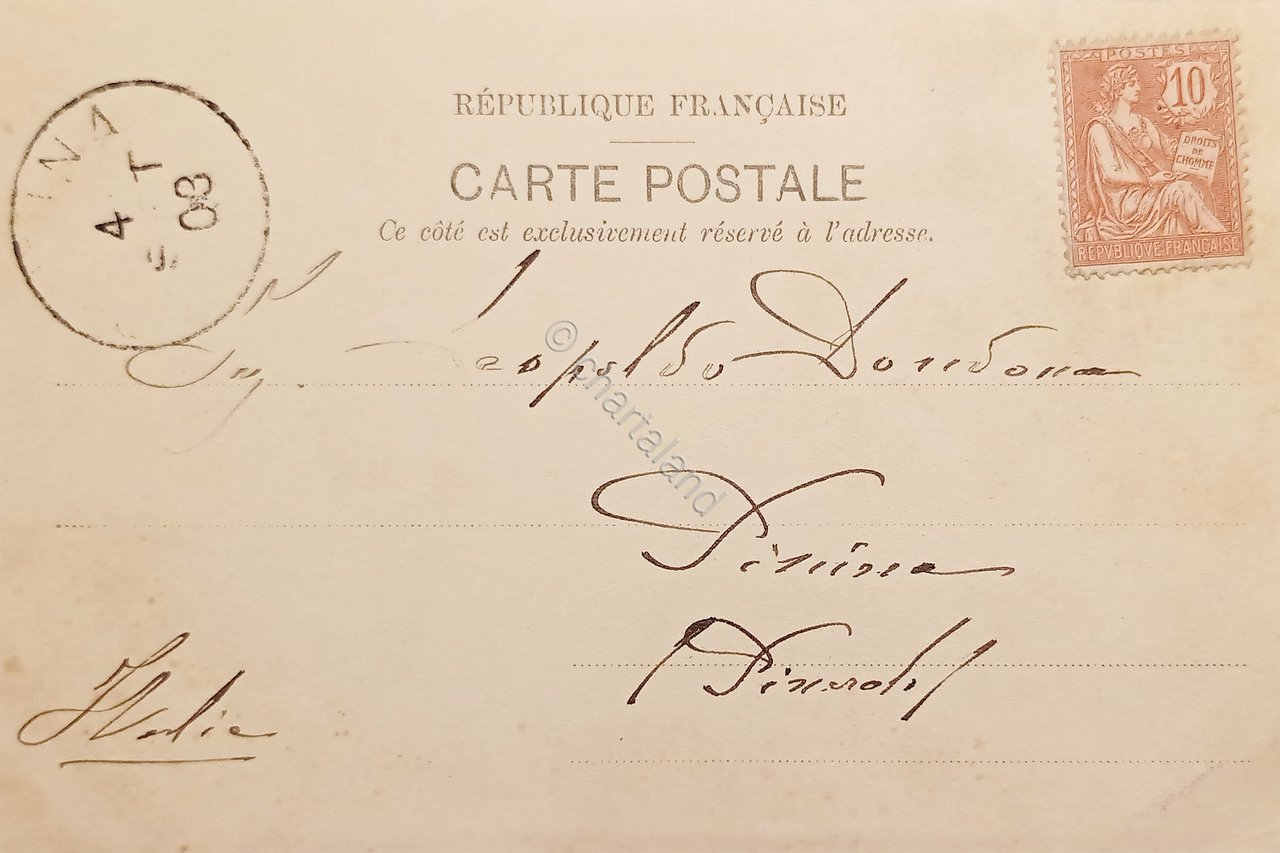 RÉPUBLIQUE FRANÇAISE
CARTE POSTALE
Ce côté est exclusivement réservé à l'adresse.
POSTES
10
DROITS
DE
L'HOMME
REPVBLIQVE FRANÇAISE
INA
4
T
03
Leopoldo Dondona
© chartaland
Italie